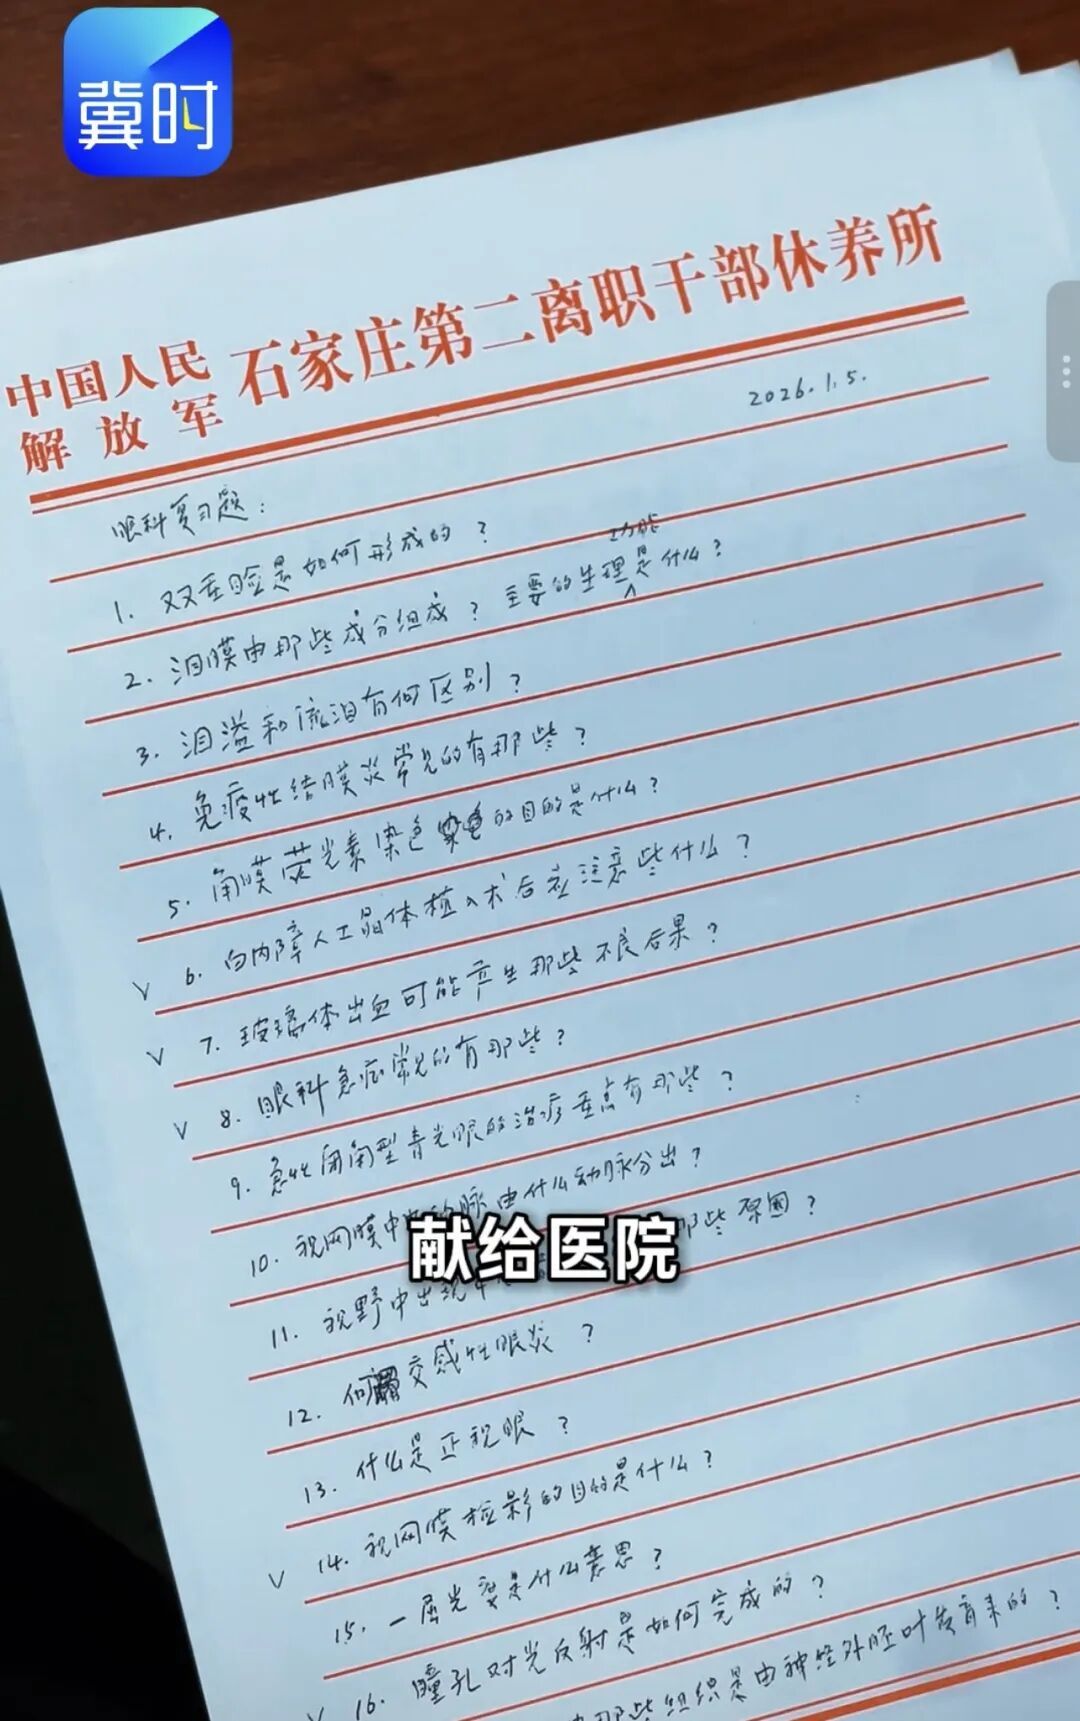 冀时
中国人民解放军 石家庄第二离职干部休养所
2026.1.5.
眼科复习题：
1. 双重睑是如何形成的？
2. 泪膜由那些成分组成？主要的生理功能是什么？
3. 泪溢和流泪有何区别？
4. 免疫性结膜炎常见的有那些？
5. 角膜荧光素染色的目的是什么？
√ 6. 白内障人工晶体植入术后应注意些什么？
√ 7. 玻璃体出血可能产生那些不良后果？
√ 8. 眼科急症常见的有那些？
9. 急性闭角型青光眼的治疗重点有那些？
10. 视网膜中央动脉由什么动脉分出？
11. 视野中出现 那些原因？
献给医院
12. 何谓交感性眼炎？
13. 什么是正视眼？
√ 14. 视网膜检影的目的是什么？
15. 一屈光度是什么意思？
√ 16. 瞳孔对光反射是如何完成的？
那些组织是由神经外胚叶发育来的？